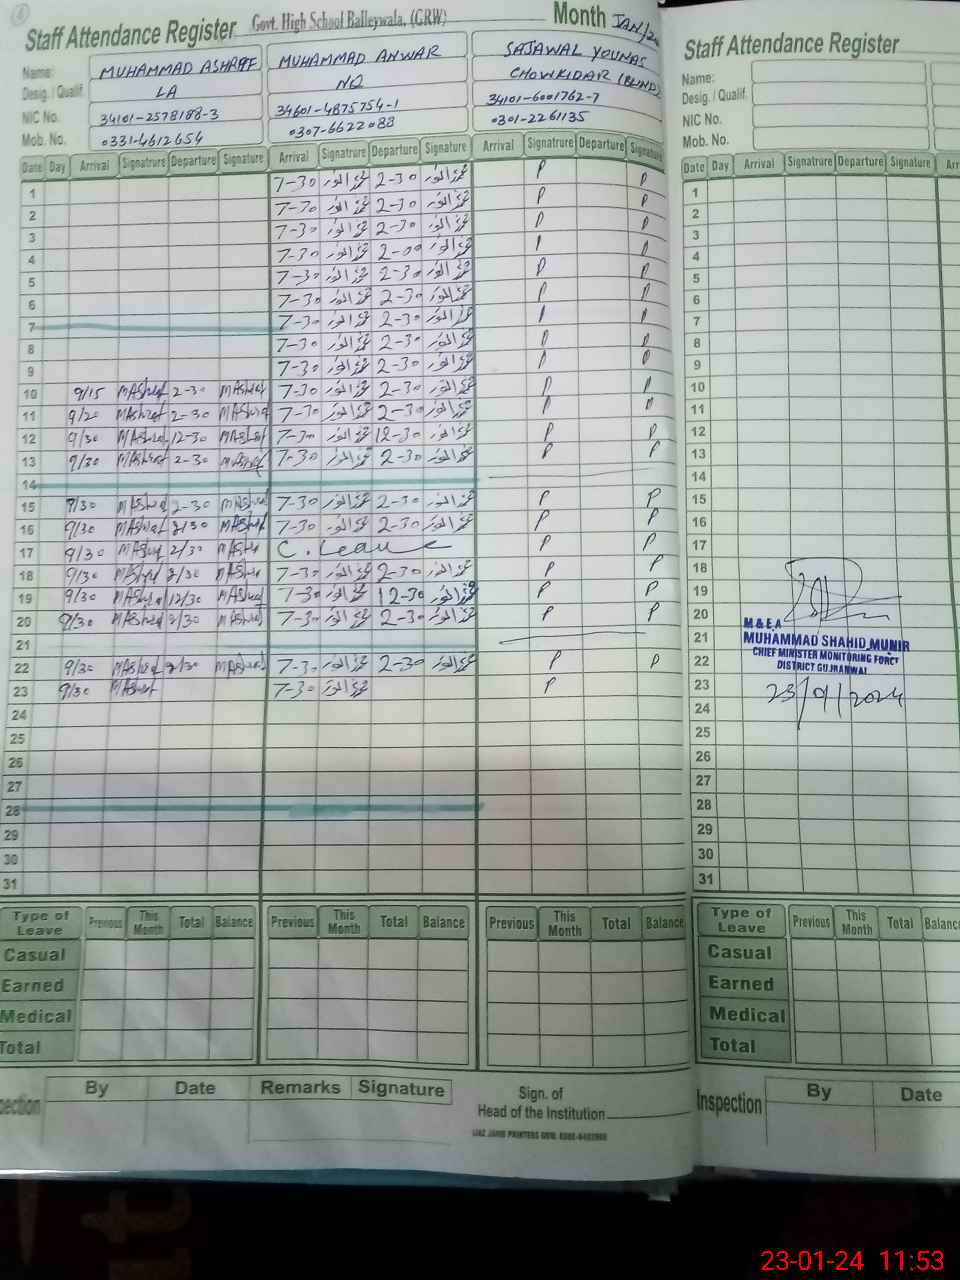 Staff Attendance Register Govt. High School Balleywala, (GRW) Month JAN/24
Name: MUHAMMAD ASHRAF MUHAMMAD ANWAR SAJAWAL YOUNAS
Desig. / Qualif. LA NQ CHOWKIDAR (BLIND)
NIC No. 34101-2578188-3 34601-4875754-1 34101-6001762-7
Mob. No. 0331-4612654 0307-6622088 0301-2261135
Date Day Arrival Signatrure Departure Signature Arrival Signatrure Departure Signature Arrival Signatrure Departure Signature
1 7-30 2-30 P P
2 7-30 2-30 P P
3 7-30 2-30 P P
4 7-30 2-00 P P
5 7-30 2-30 P P
6 7-30 2-30 P P
7 7-30 2-30 P P
8 7-30 2-30 P P
9 7-30 2-30 P P
10 9/15 MAshraf 2-30 MAshraf 7-30 2-30 P P
11 9/20 MAshraf 2-30 MAshraf 7-30 2-30 P P
12 9/30 MAshraf 12-30 MAshraf 7-30 12-30 P P
13 9/30 MAshraf 2-30 MAshraf 7-30 2-30 P P
14
15 9/30 MAshraf 2-30 MAshraf 7-30 2-30 P P
16 9/30 MAshraf 2/30 MAshraf 7-30 2-30 P P
17 9/30 MAshraf 2/30 MAshraf C. Leave P P
18 9/30 MAshraf 2/30 MAshraf 7-30 2-30 P P
19 9/30 MAshraf 12/30 MAshraf 7-30 12-30 P P
20 9/30 MAshraf 2/30 MAshraf 7-30 2-30 P P
21
22 9/30 MAshraf 2/30 MAshraf 7-30 2-30 P P
23 9/30 MAshraf 7-30 P
24
25
26
27
28
29
30
31
Type of Leave Previous This Month Total Balance Previous This Month Total Balance Previous This Month Total Balance
Casual
Earned
Medical
Total
By Date Remarks Signature
pection
Sign. of
Head of the Institution
Staff Attendance Register
Name:
Desig. / Qualif.
NIC No.
Mob. No.
Date Day Arrival Signatrure Departure Signature Arr
1
2
3
4
5
6
7
8
9
10
11
12
13
14
15
16
17
18
19
20
21
22
23
24
25
26
27
28
29
30
31
M & E.A
MUHAMMAD SHAHID MUNIR
CHIEF MINISTER MONITORING FORCE
DISTRICT GUJRANWAL
23/01/2024
Type of Leave Previous This Month Total Balance
Casual
Earned
Medical
Total
Inspection By Date
23-01-24 11:53